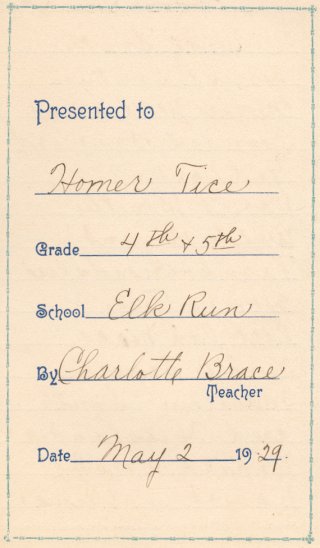 Presented to
Homer Tice
Grade 4th + 5th
School Elk Run
By Charlotte Brace
Teacher
Date May 2 1929.